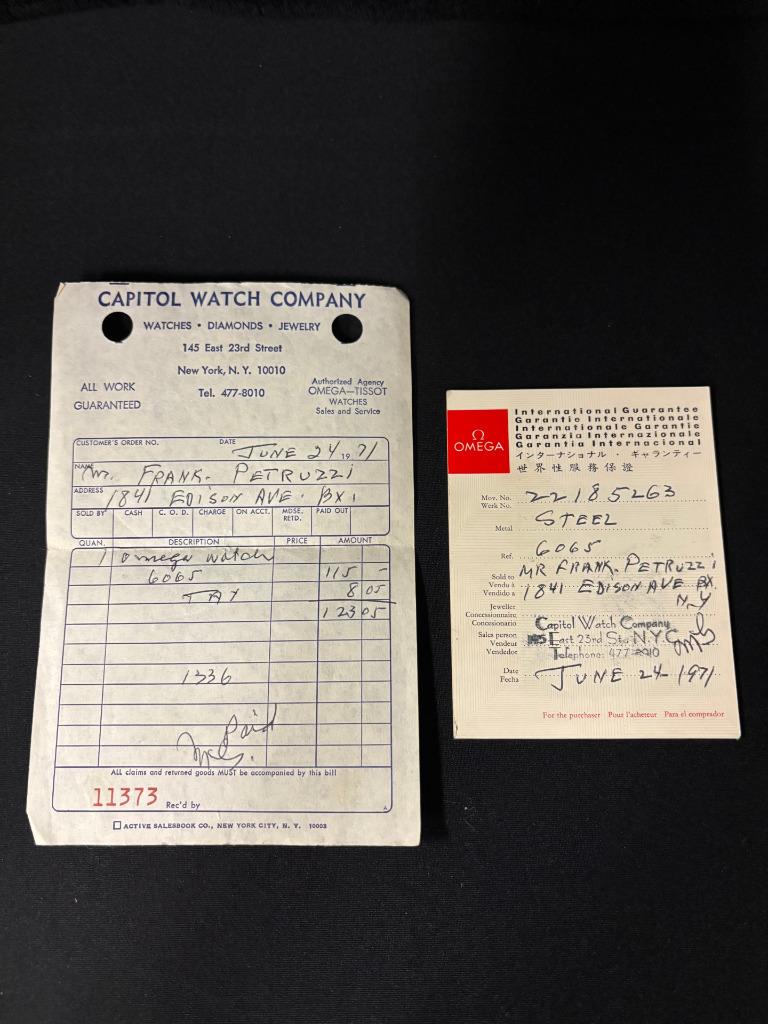 CAPITOL WATCH COMPANY
WATCHES • DIAMONDS • JEWELRY
145 East 23rd Street
New York, N. Y. 10010
Tel. 477-8010
ALL WORK
GUARANTEED
Authorized Agency
OMEGA—TISSOT
WATCHES
Sales and Service
CUSTOMER'S ORDER NO. DATE JUNE 24 1971
NAME Mr. FRANK. PETRUZZI
ADDRESS 1841 EDISON AVE. BX.
SOLD BY CASH C. O. D. CHARGE ON ACCT. MDSE. RETD. PAID OUT
QUAN. DESCRIPTION PRICE AMOUNT
1 Omega watch
6065 115 –
TAX 8 05
123 05
1336
Paid
ALL claims and returned goods MUST be accompanied by this bill
11373 Rec'd by
ACTIVE SALESBOOK CO., NEW YORK CITY, N. Y. 10003
Ω
OMEGA
International Guarantee
Garantie Internationale
Internationale Garantie
Garanzia Internazionale
Garantia Internacional
インターナショナル・ギャランティー
世界性服務保證
Mov. No. 22185263
Werk No.
Metal STEEL
Ref. 6065
Sold to MR FRANK. PETRUZZI
Vendu à 1841 EDISON AVE BX.
Vendido a N-Y
Jeweller
Concessionnaire
Concesionario
Capitol Watch Company
Sales person 145 East 23rd St. N.Y.C.
Vendeur
Vendedor Telephone: 477-8010
Date JUNE 24-1971
Fecha
For the purchaser Pour l'acheteur Para el comprador